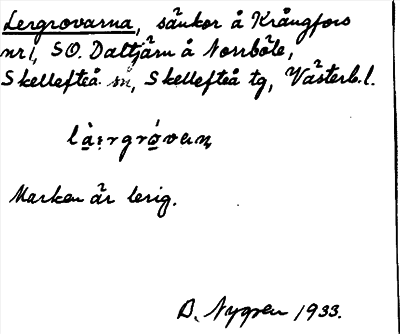 Lergrovarna, sänkor å Krångfors
nr 1, SO. Daltjärn å Norrböle,
Skellefteå sn, Skellefteå tg, Västerb. l.
Marken är lerig.
B. Nygren 1933.